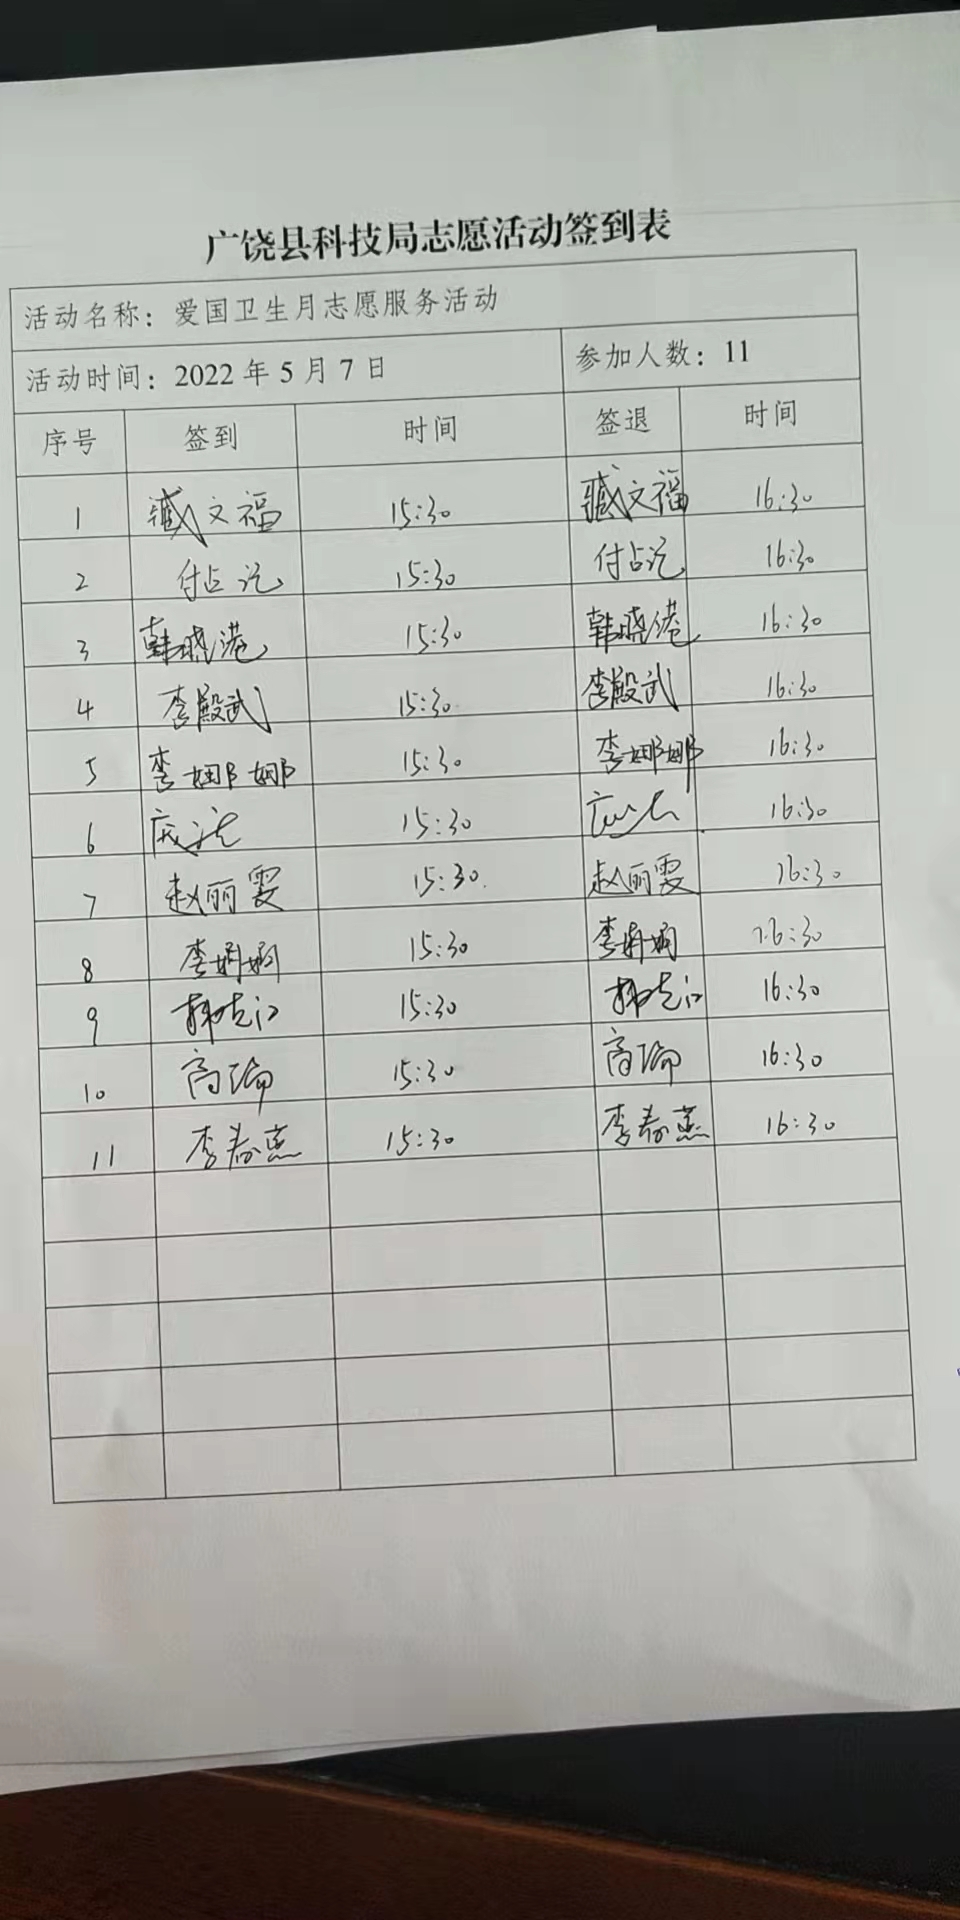 广饶县科技局志愿活动签到表
活动名称：爱国卫生月志愿服务活动
活动时间：2022 年 5 月 7 日 参加人数：11
序号 签到 时间 签退 时间
1 臧文福 15:30 臧文福 16:30
2 15:30 16:30
3 韩晓港 15:30 韩晓港 16:30
4 李殿武 15:30 李殿武 16:30
5 李娜娜 15:30 李娜娜 16:30
6 15:30 16:30
7 赵丽雯 15:30 赵丽雯 16:30
8 李娟娟 15:30 李娟娟 16:30
9 15:30 16:30
10 高瑜 15:30 高瑜 16:30
11 李春燕 15:30 李春燕 16:30